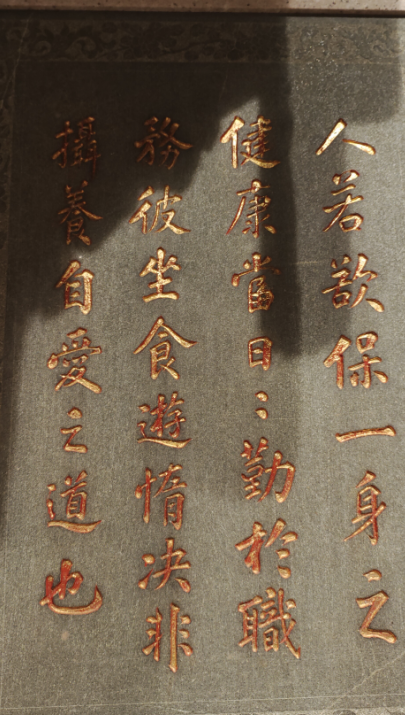 人若欲保一身之
健康當日〻勤於職
務彼坐食遊惰决非
攝養自愛之道也